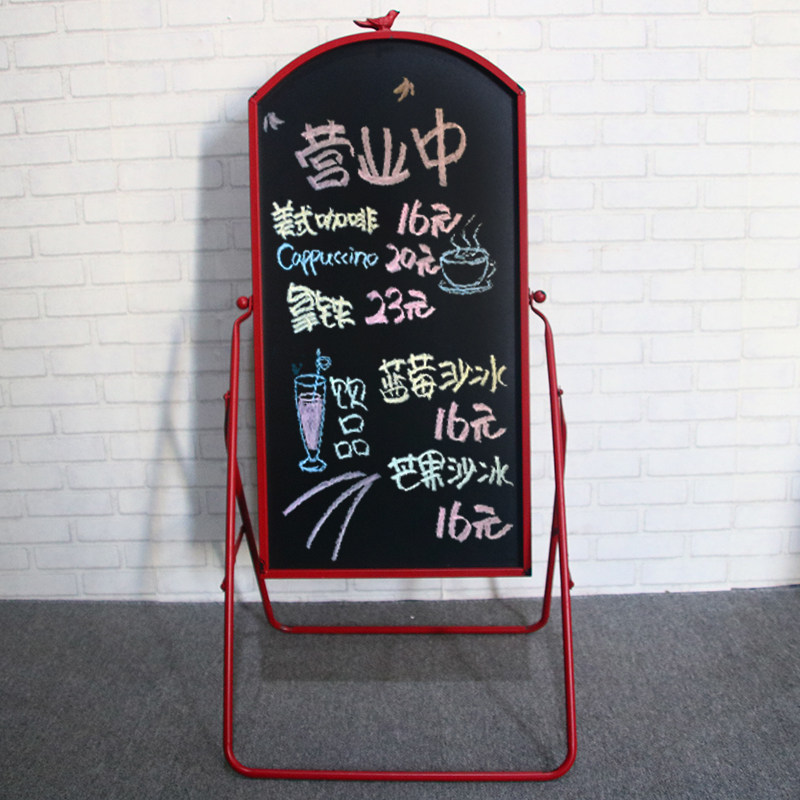 营业中
美式咖啡 16元
Cappuccino 20元
拿铁 23元
饮品
蓝莓沙冰
16元
芒果沙冰
16元